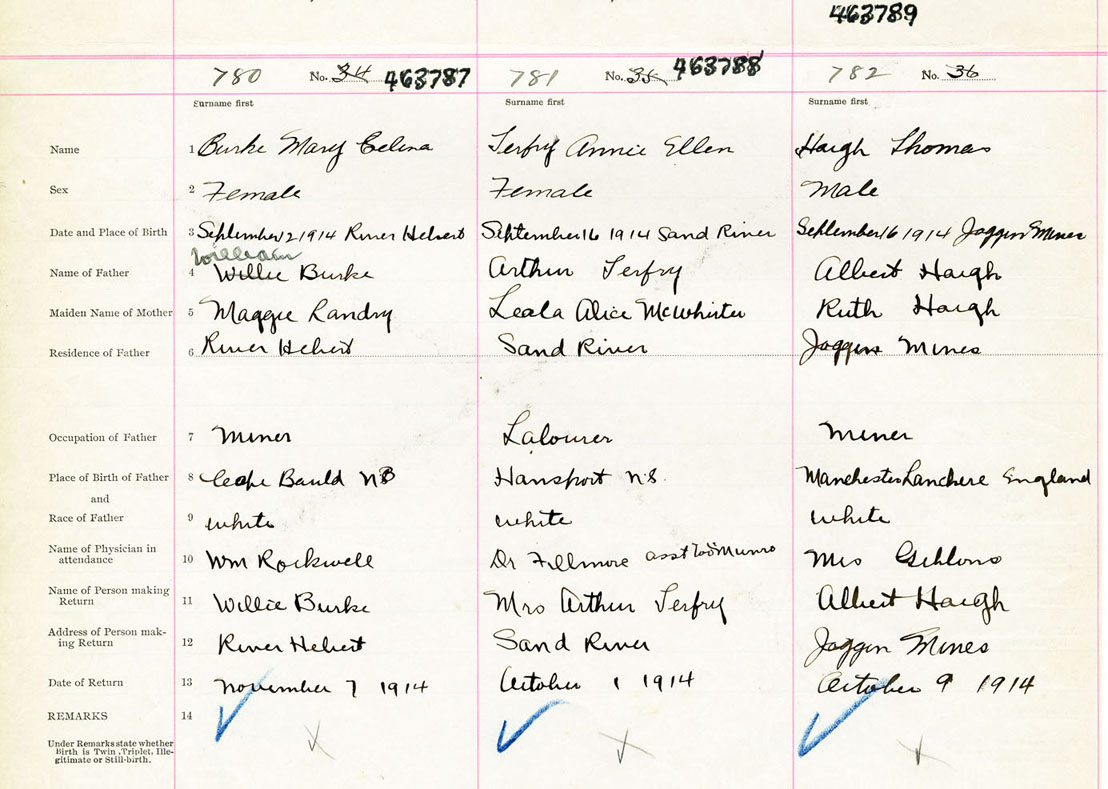 463789
780 No. 34 463787 781 No. 35 463788 782 No. 36
Surname first Surname first Surname first
Name 1 Burke Mary Celina Terfry Annie Ellen Haigh Thomas
Sex 2 Female Female Male
Date and Place of Birth 3 September 12 1914 River Hebert September 16 1914 Sand River September 16 1914 Joggin Mines
William
Name of Father 4 Willie Burke Arthur Terfry Albert Haigh
Maiden Name of Mother 5 Maggie Landry Leala Alice McWhirter Ruth Haigh
Residence of Father 6 River Hebert Sand River Joggins Mines
Occupation of Father 7 Miner Labourer Miner
Place of Birth of Father 8 Cape Bauld NB Hansport N.S. Manchester Lanchere England
and
Race of Father 9 white white white
Name of Physician in
attendance 10 Wm Rockwell Dr Fillmore asst Munro Mrs Gibbons
Name of Person making
Return 11 Willie Burke Mrs Arthur Terfry Albert Haigh
Address of Person mak-
ing Return 12 River Hebert Sand River Joggin Mines
Date of Return 13 November 7 1914 October 1 1914 October 9 1914
REMARKS 14
Under Remarks state whether
Birth is Twin, Triplet, Ille-
gitimate or Still-birth.